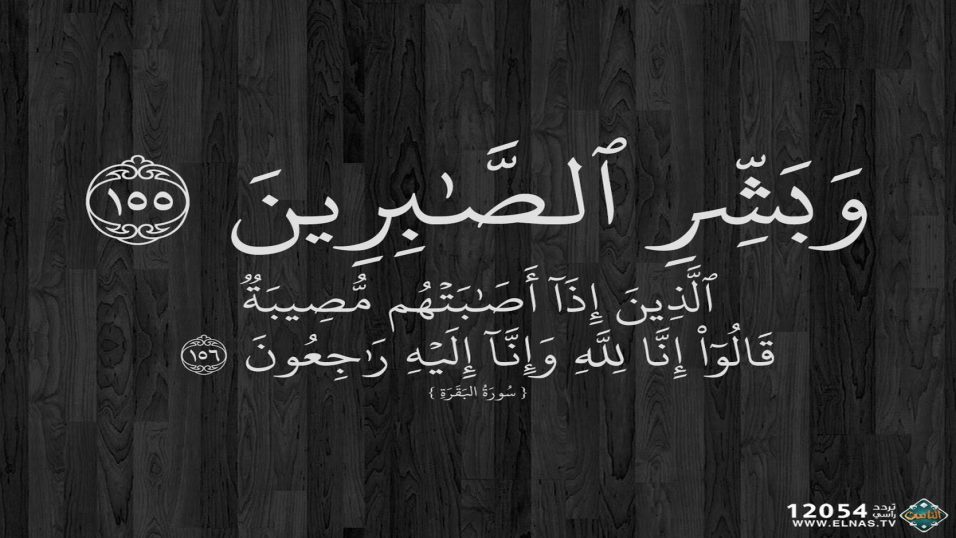 وَبَشِّرِ ٱلصَّـٰبِرِينَ ١٥٥
ٱلَّذِينَ إِذَآ أَصَـٰبَتْهُم مُّصِيبَةٌۭ
قَالُوٓا۟ إِنَّا لِلَّهِ وَإِنَّآ إِلَيْهِ رَٰجِعُونَ ١٥٦
{ سُورَةُ البَقَرَةِ }
12054 تردد رأسي
WWW.ELNAS.TV
الناس